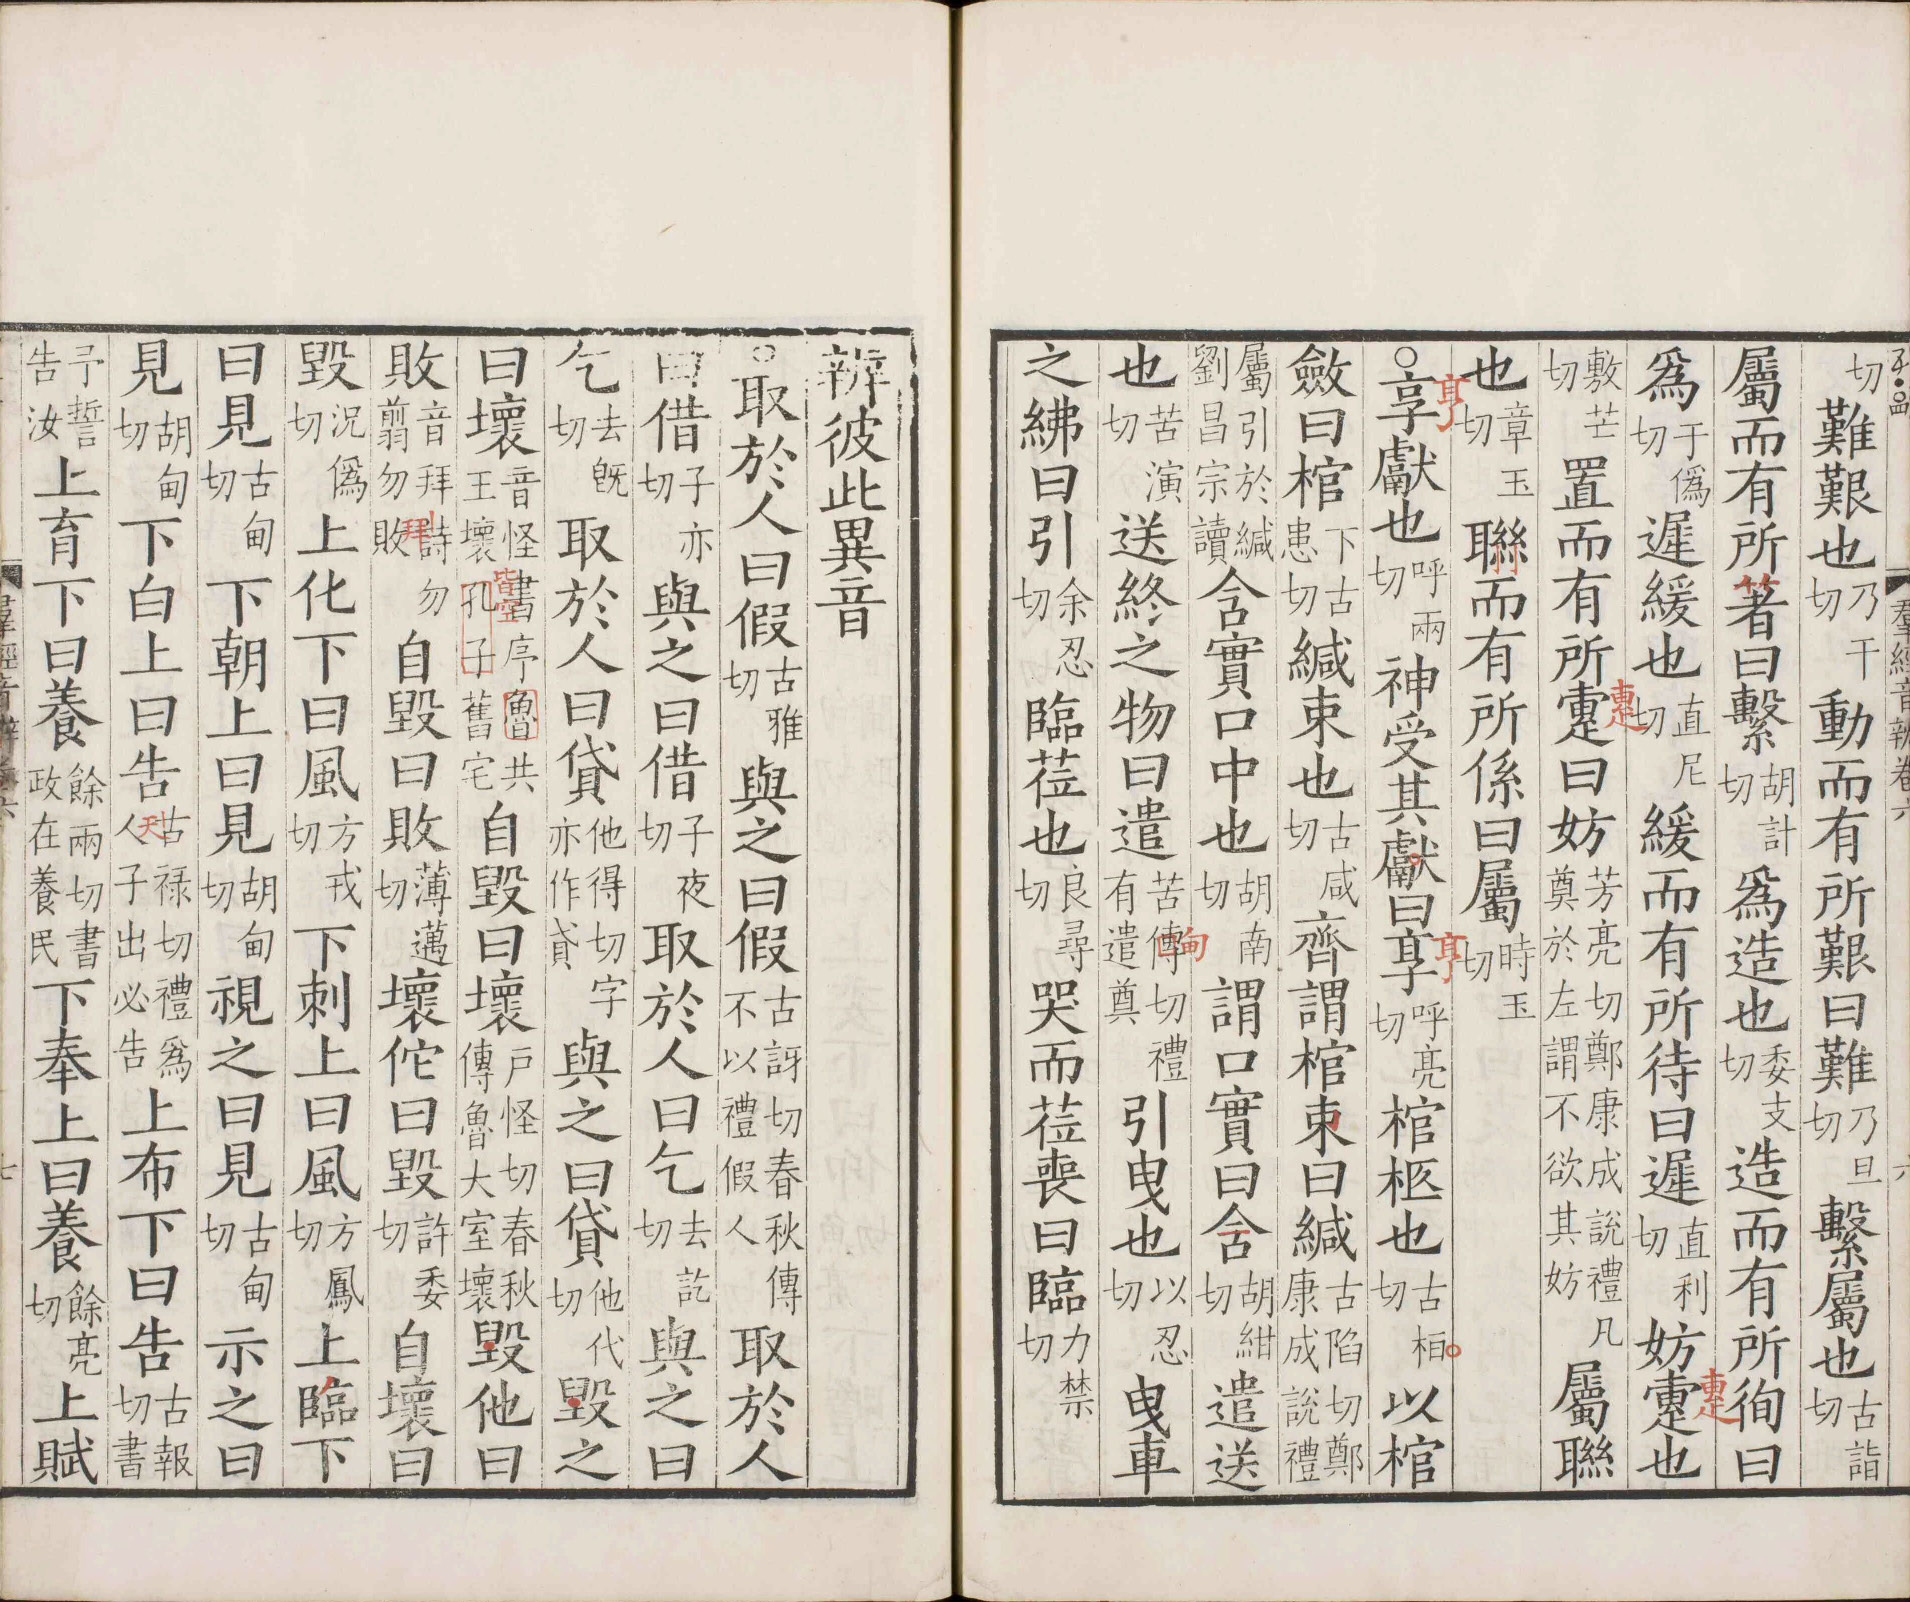 切難艱也乃干切動而有所艱曰難乃旦切繫屬也古詣切
屬而有所著曰繫胡計切為造也委支切造而有所徇曰
為于僞切遲緩也直尼切緩而有所待曰遲直利切妨疐也
敷芒切置而有所疐曰妨芳亮切鄭康成說禮凡奠於左謂不欲其妨屬聯
也章玉切聯而有所係曰屬時玉切
○享獻也呼兩切神受其獻曰享呼亮切棺柩也古桓切以棺
斂曰棺下古患切緘束也古咸切齊謂棺束曰緘古陷切鄭康成說禮
屬引於緘劉昌宗讀含實口中也胡南切謂口實曰含胡紺切遣送
也苦演切送終之物曰遣苦傳切禮有遣奠引曳也以忍切曳車
之紼曰引余忍切臨莅也良尋切哭而莅喪曰臨力禁切
羣經音辨卷六
六
辨彼此異音
○取於人曰假古雅切與之曰假古訝切春秋傳不以禮假人取於人
曰借子亦切與之曰借子夜切取於人曰乞去訖切與之曰
乞去旣切取於人曰貸他得切字亦作貣與之曰貸他代切毀之
曰壞音怪書序魯共王壞孔子舊宅自毀曰壞戶怪切春秋傳魯大室壞毀他曰
敗音拜詩勿翦勿敗自毀曰敗薄邁切壞佗曰毀許委切自壞曰
毀況僞切上化下曰風方戎切下刺上曰風方鳳切上臨下
曰見古甸切下朝上曰見胡甸切視之曰見古甸切示之曰
見胡甸切下白上曰告古祿切禮為人子出必告上布下曰告古報切書
予誓告汝上育下曰養餘兩切書政在養民下奉上曰養餘亮切上賦
羣經音辨卷六
七